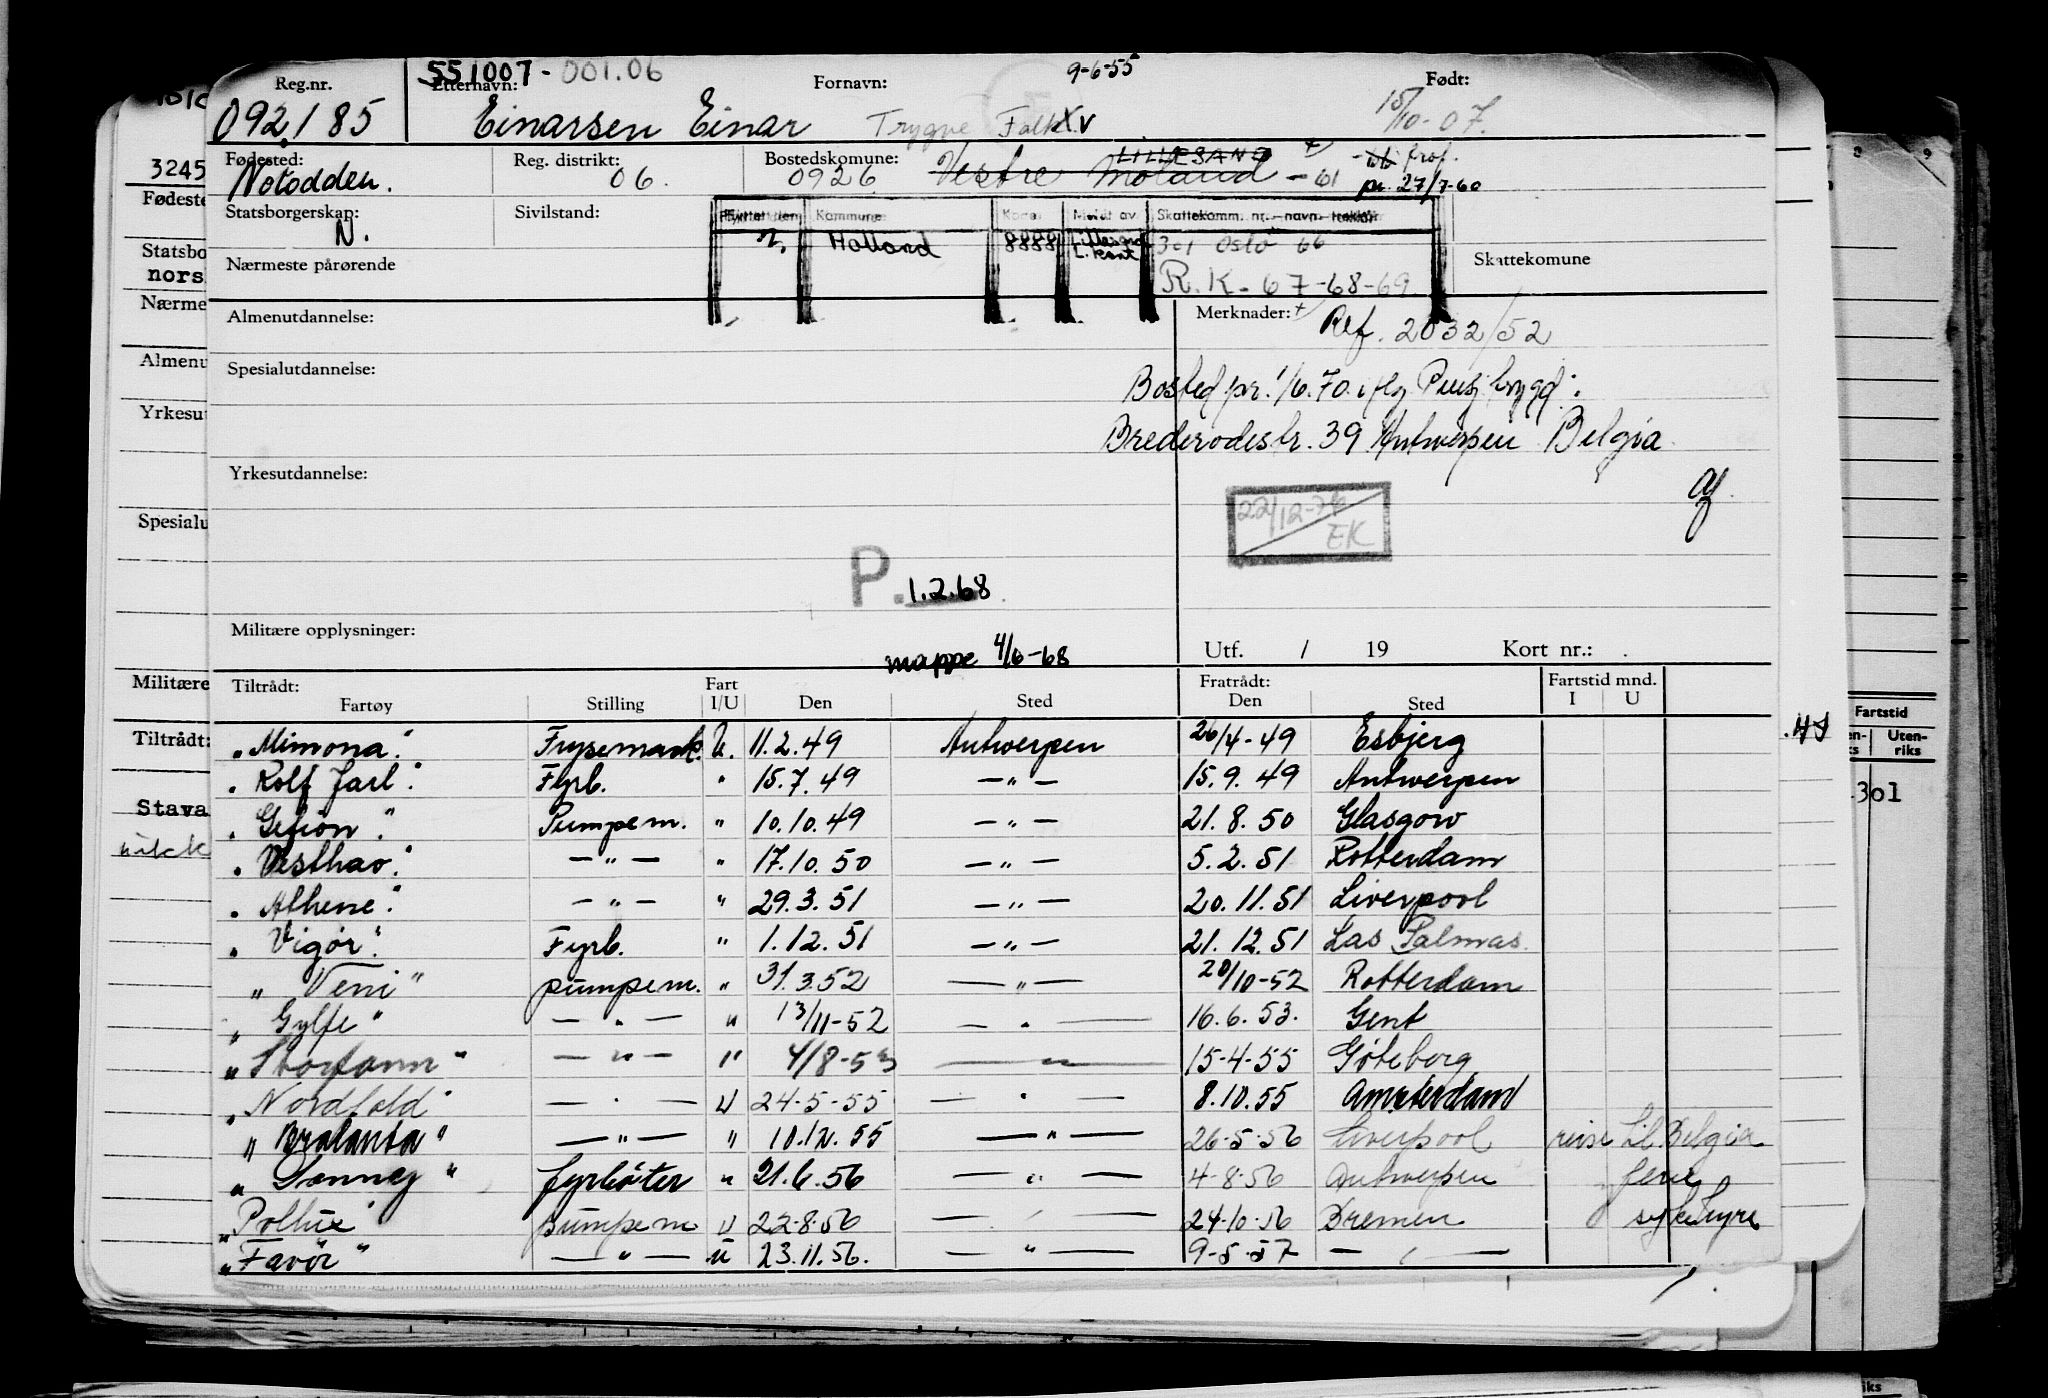 551007-001.06 9-6-55
Reg.nr. Etternavn: Fornavn: Født:
092185 Einarsen Einar Trygve Falk XV 15/10-07.
Fødested: Reg. distrikt: Bostedskomune: LILLESAND
Notodden. 06. 0926 Vestre Moland -61 prof.
pr. 27/7-60
Statsborgerskap: Sivilstand: Kommune Meldt av Skattekomm. nr. - navn
N. n. Holland 8888 Lillesand L.kont 301 Oslo 66
Nærmeste pårørende R.K. 67-68-69 Skattekomune
Almenutdannelse: Merknader: Ref. 2032/52
Spesialutdannelse: Bosted pr. 1/6.70. i flg.
Brederodestr. 39 Antwerpen Belgia.
Yrkesutdannelse:
22/12-76
EK
P. 1.2.68
Militære opplysninger: mappe 4/6-68 Utf. / 19 Kort nr.: .
Tiltrådt: Fart Fratrådt: Fartstid mnd.
Fartøy Stilling I/U Den Sted Den Sted I U
"Mimona" Frysemask. U. 11.2.49 Antwerpen 26/4-49 Esbjerg
"Rolf Jarl" Fyrb. " 15.7.49 — " — 15.9.49 Antwerpen
"Gefion" Pumpem. " 10.10.49 — " — 21.8.50 Glasgow
"Vesthav" — " — " 17.10.50 — " — 5.2.51 Rotterdam
"Athene" — " — " 29.3.51 — " — 20.11.51 Liverpool
"Vigør" Fyrb. " 1.12.51 — " — 21.12.51 Las Palmas.
"Veni" pumpem. " 31.3.52 — " — 20/10-52 Rotterdam
"Gylfe" — " — " 13/11-52 — " — 16.6.53. Gent
"Storfonn" — " — " 4/8-53 — " — 15-4-55 Göteborg
"Nordfold" — " — U 24-5-55 — " — 8.10.55 Amsterdam
"Bralanta" — " — " 10.12.55 — " — 26-5-56 Liverpool reise til Belgia
"Danney" fyrbøter " 21.6.56 — " — 4-8-56 Antwerpen ferie
"Pollux" pumpem U 22-8-56 — " — 24-10-56 Bremen
"Favør" — " — U 23.11.56. — " — 9-5-57 — " —
3245
Fødeste
Statsbo
nors
Nærme
Almenu
Yrkesut
Spesialu
Militære
Tiltrådt:
Stava
8 9
Fartstid
Uten-
riks
301